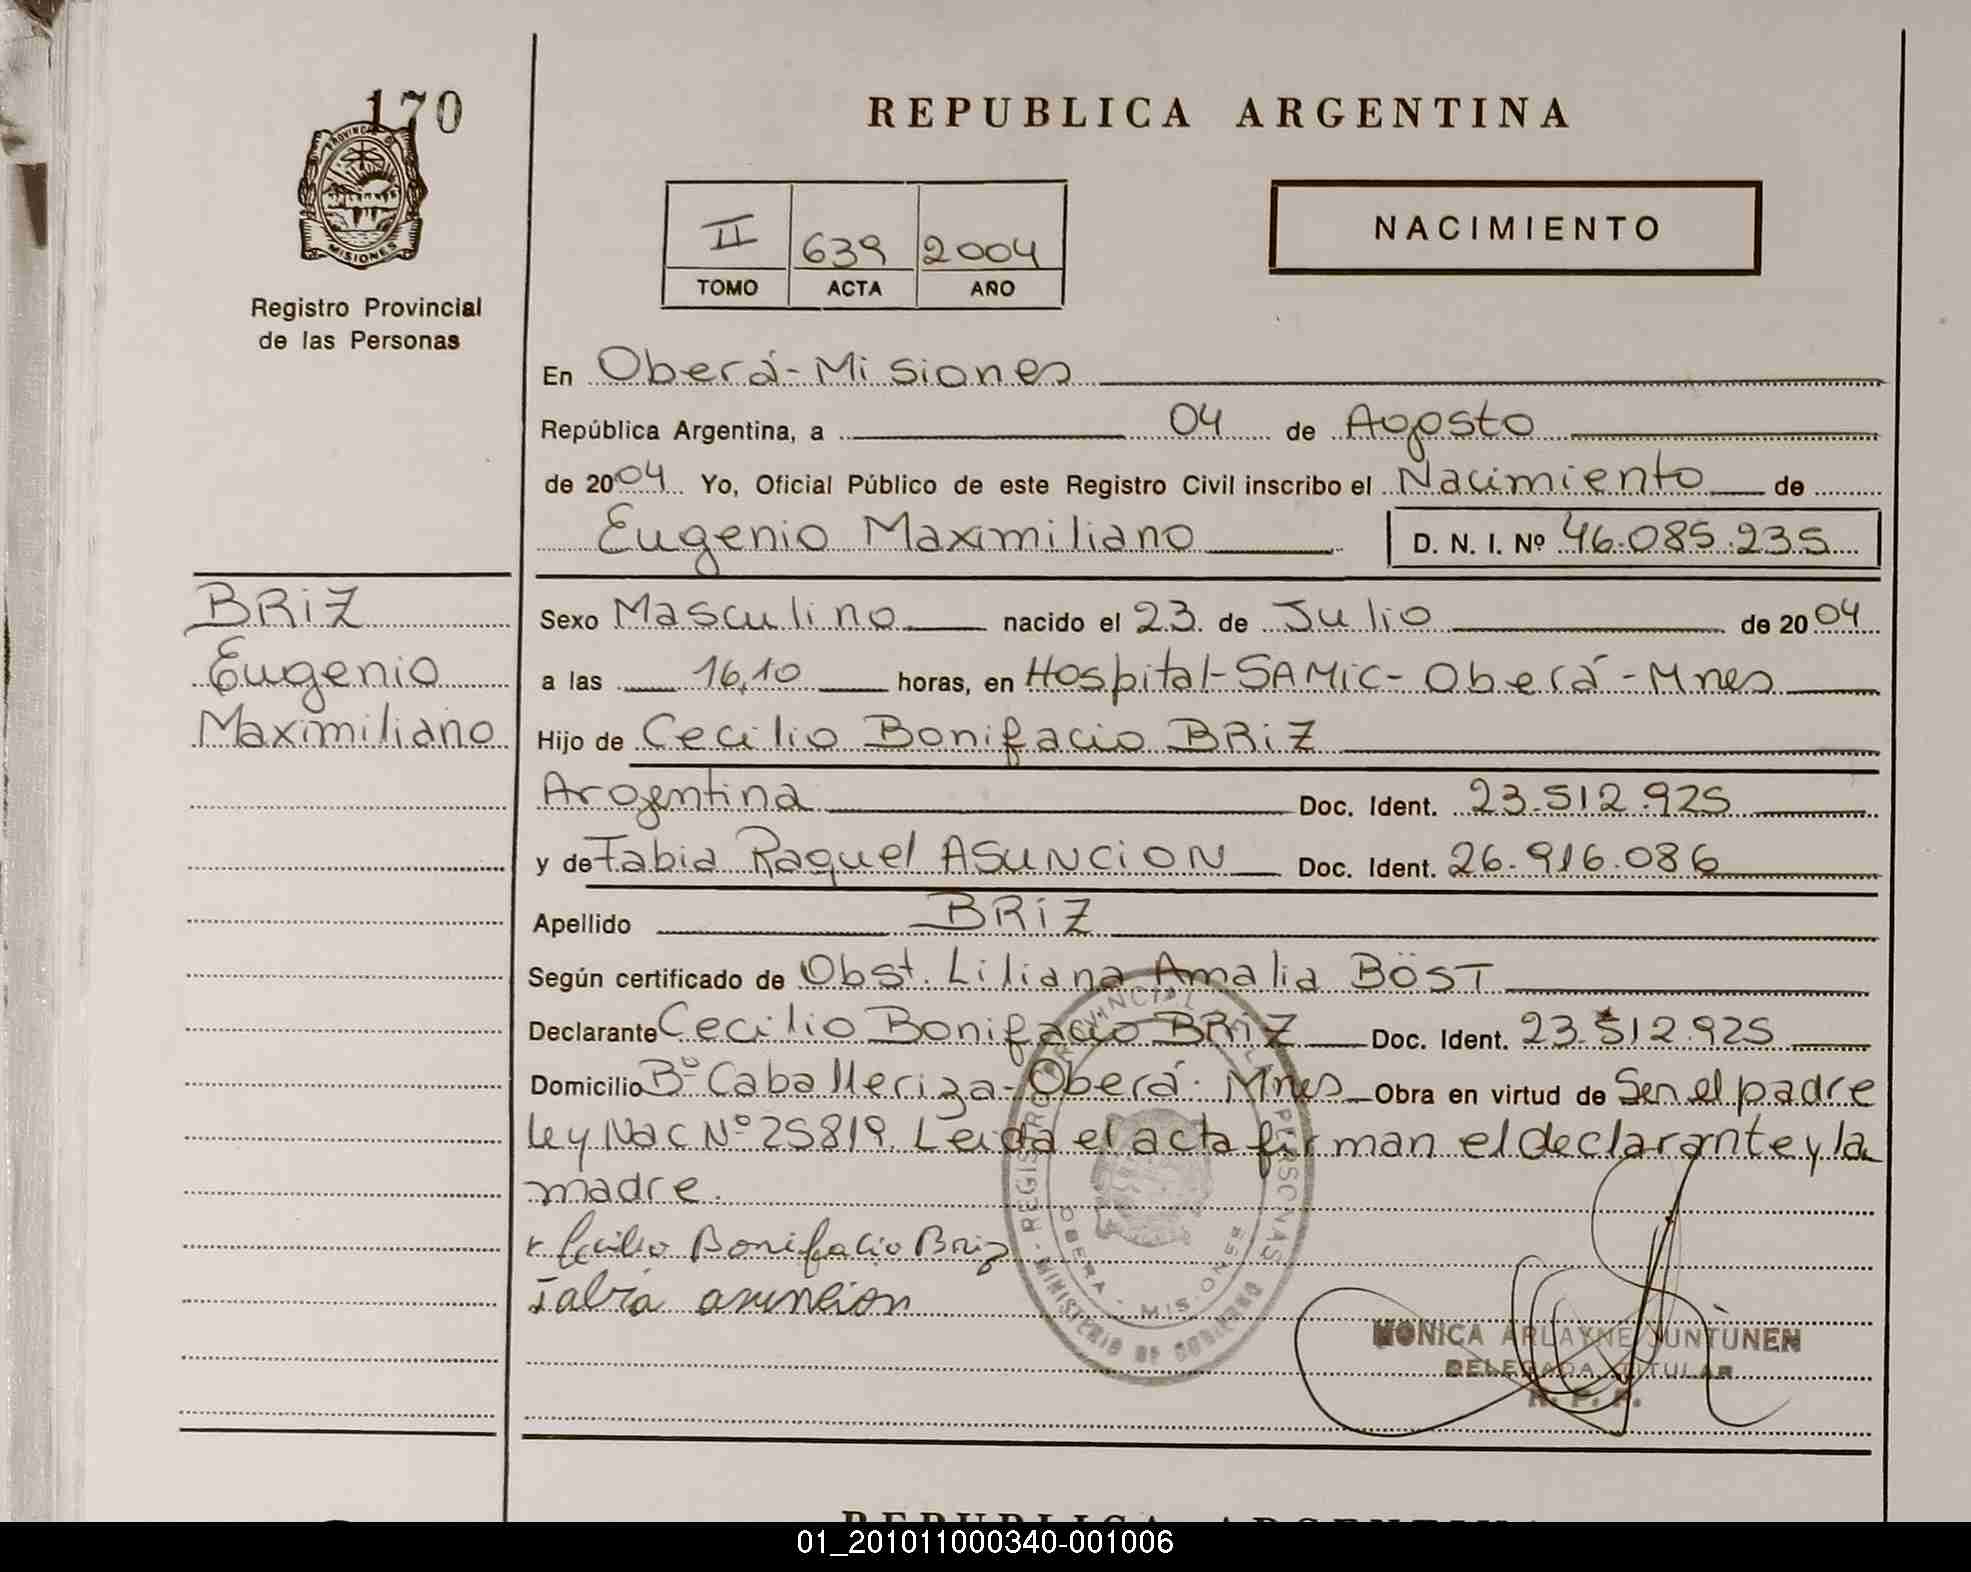 170
PROVINCIA DE
MISIONES
Registro Provincial
de las Personas
REPUBLICA ARGENTINA
II 639 2004
TOMO ACTA AÑO
NACIMIENTO
En Oberá-Misiones
República Argentina, a 04 de Agosto
de 2004 Yo, Oficial Público de este Registro Civil inscribo el Nacimiento de
Eugenio Maximiliano D. N. I. Nº 46.085.235
BRiZ
Eugenio
Maximiliano
Sexo Masculino nacido el 23 de Julio de 2004
a las 16,10 horas, en Hospital-SAMiC-Oberá-Mnes
Hijo de Cecilio Bonifacio BRiZ
Argentina Doc. Ident. 23.512.925
y de Fabia Raquel ASUNCiON Doc. Ident. 26.916.086
Apellido BRiZ
Según certificado de Obst. Liliana Amalia BÖST
Declarante Cecilio Bonifacio BRiZ Doc. Ident. 23.512.925
Domicilio Bº Caballeriza-Oberá-Mnes Obra en virtud de Ser el padre
Ley Nac Nº 25819. Leida el acta firman el declarante y la
madre.
Cecilio Bonifacio Briz
Fabia asuncion
REGISTRO PROVINCIAL DE LAS PERSONAS
OBERA - MISIONES
MINISTERIO DE GOBIERNO
MONICA ARLAYNE JUNTUNEN
DELEGADA TITULAR
R. P. P.
REPUBLICA ARGENTINA
01_201011000340-001006